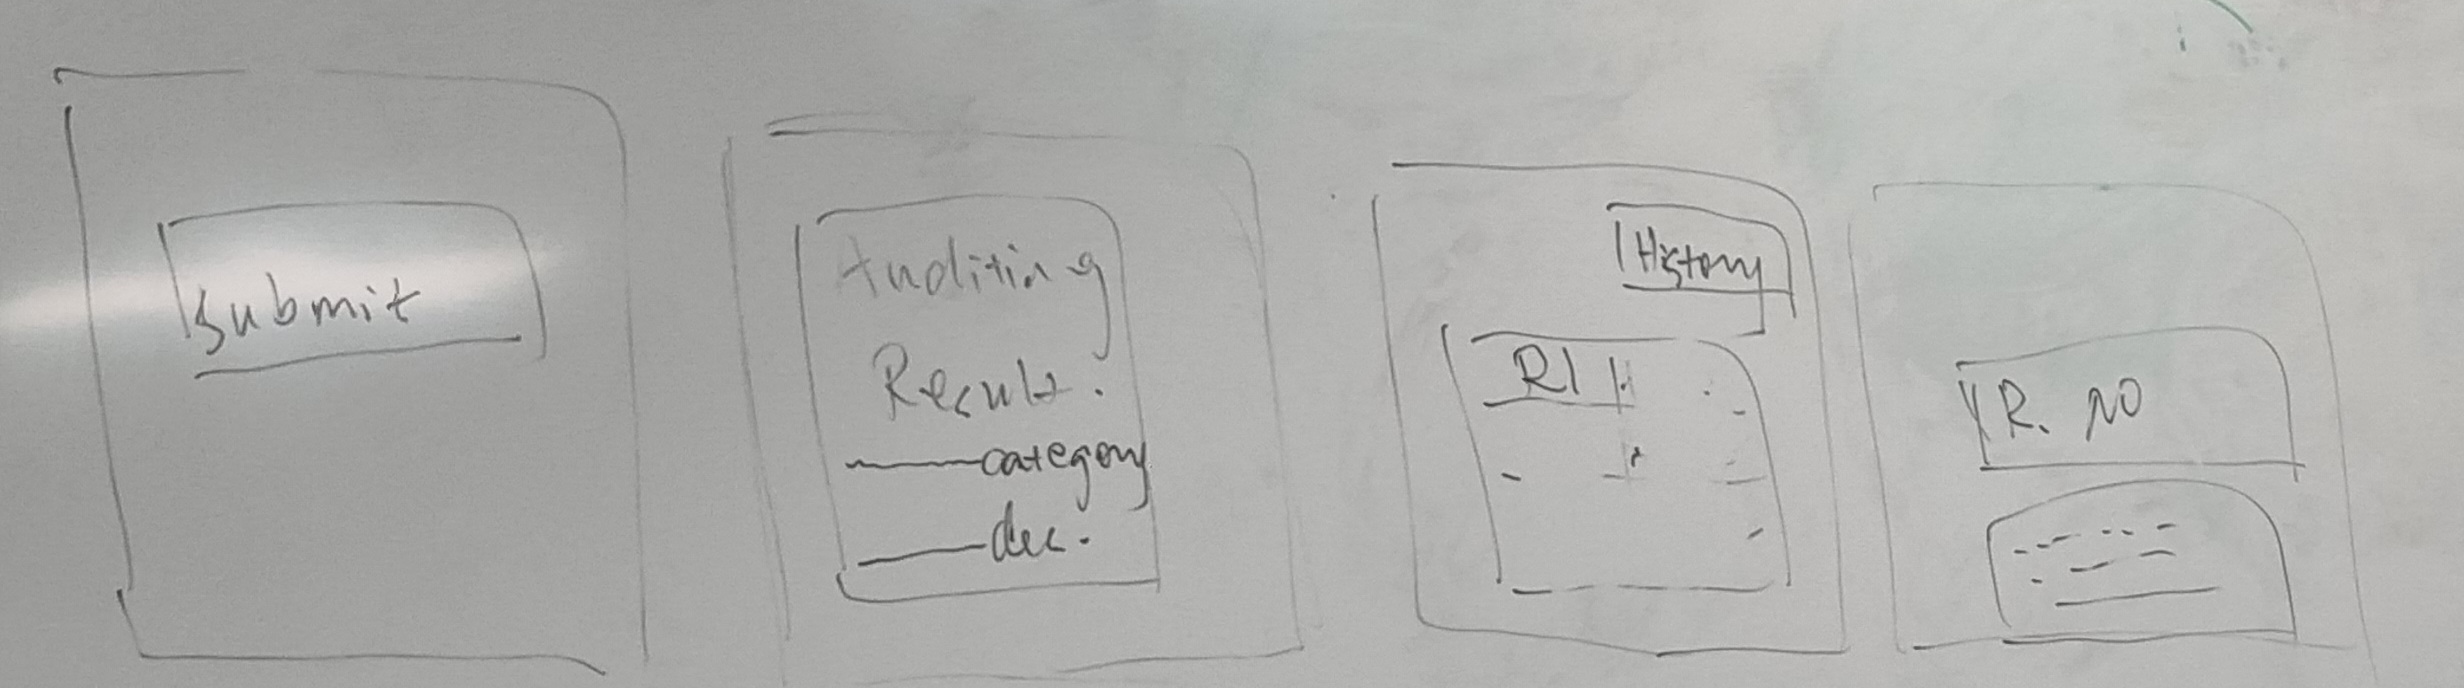 submit
Auditing
Result.
category
dec.
History
R1
R. NO